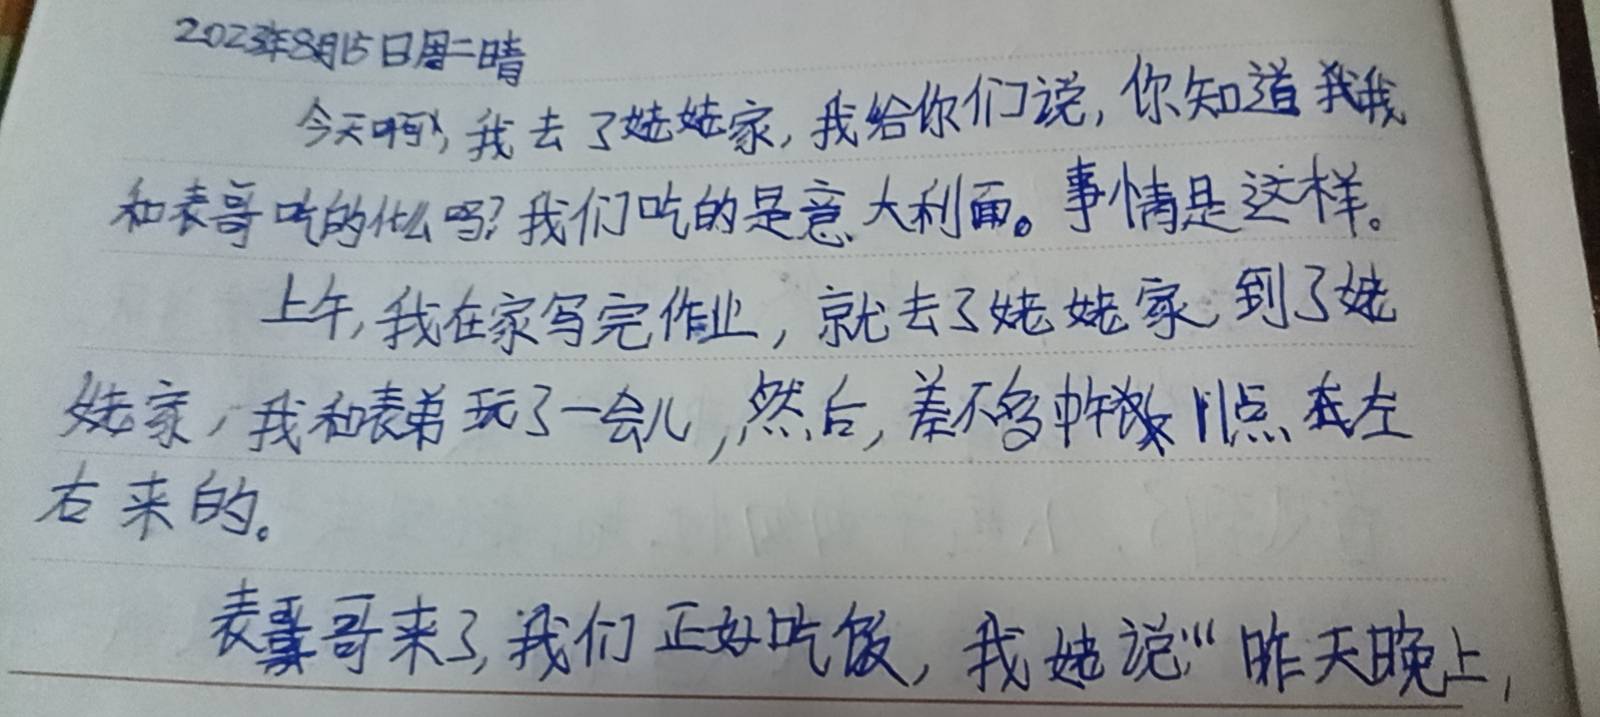 2023年8月15日周二晴
今天啊,我去了姥姥家,我给你们说,你知道我我
和表哥吃的什么吗?我们吃的是意大利面。事情是这样。
上午,我在家写完作业,就去了姥姥家,到了姥
姥家,我和表弟玩了一会儿,然后,差不多中午 11点 左
右来的。
表哥来了,我们正好吃饭,我姥说“昨天晚上,